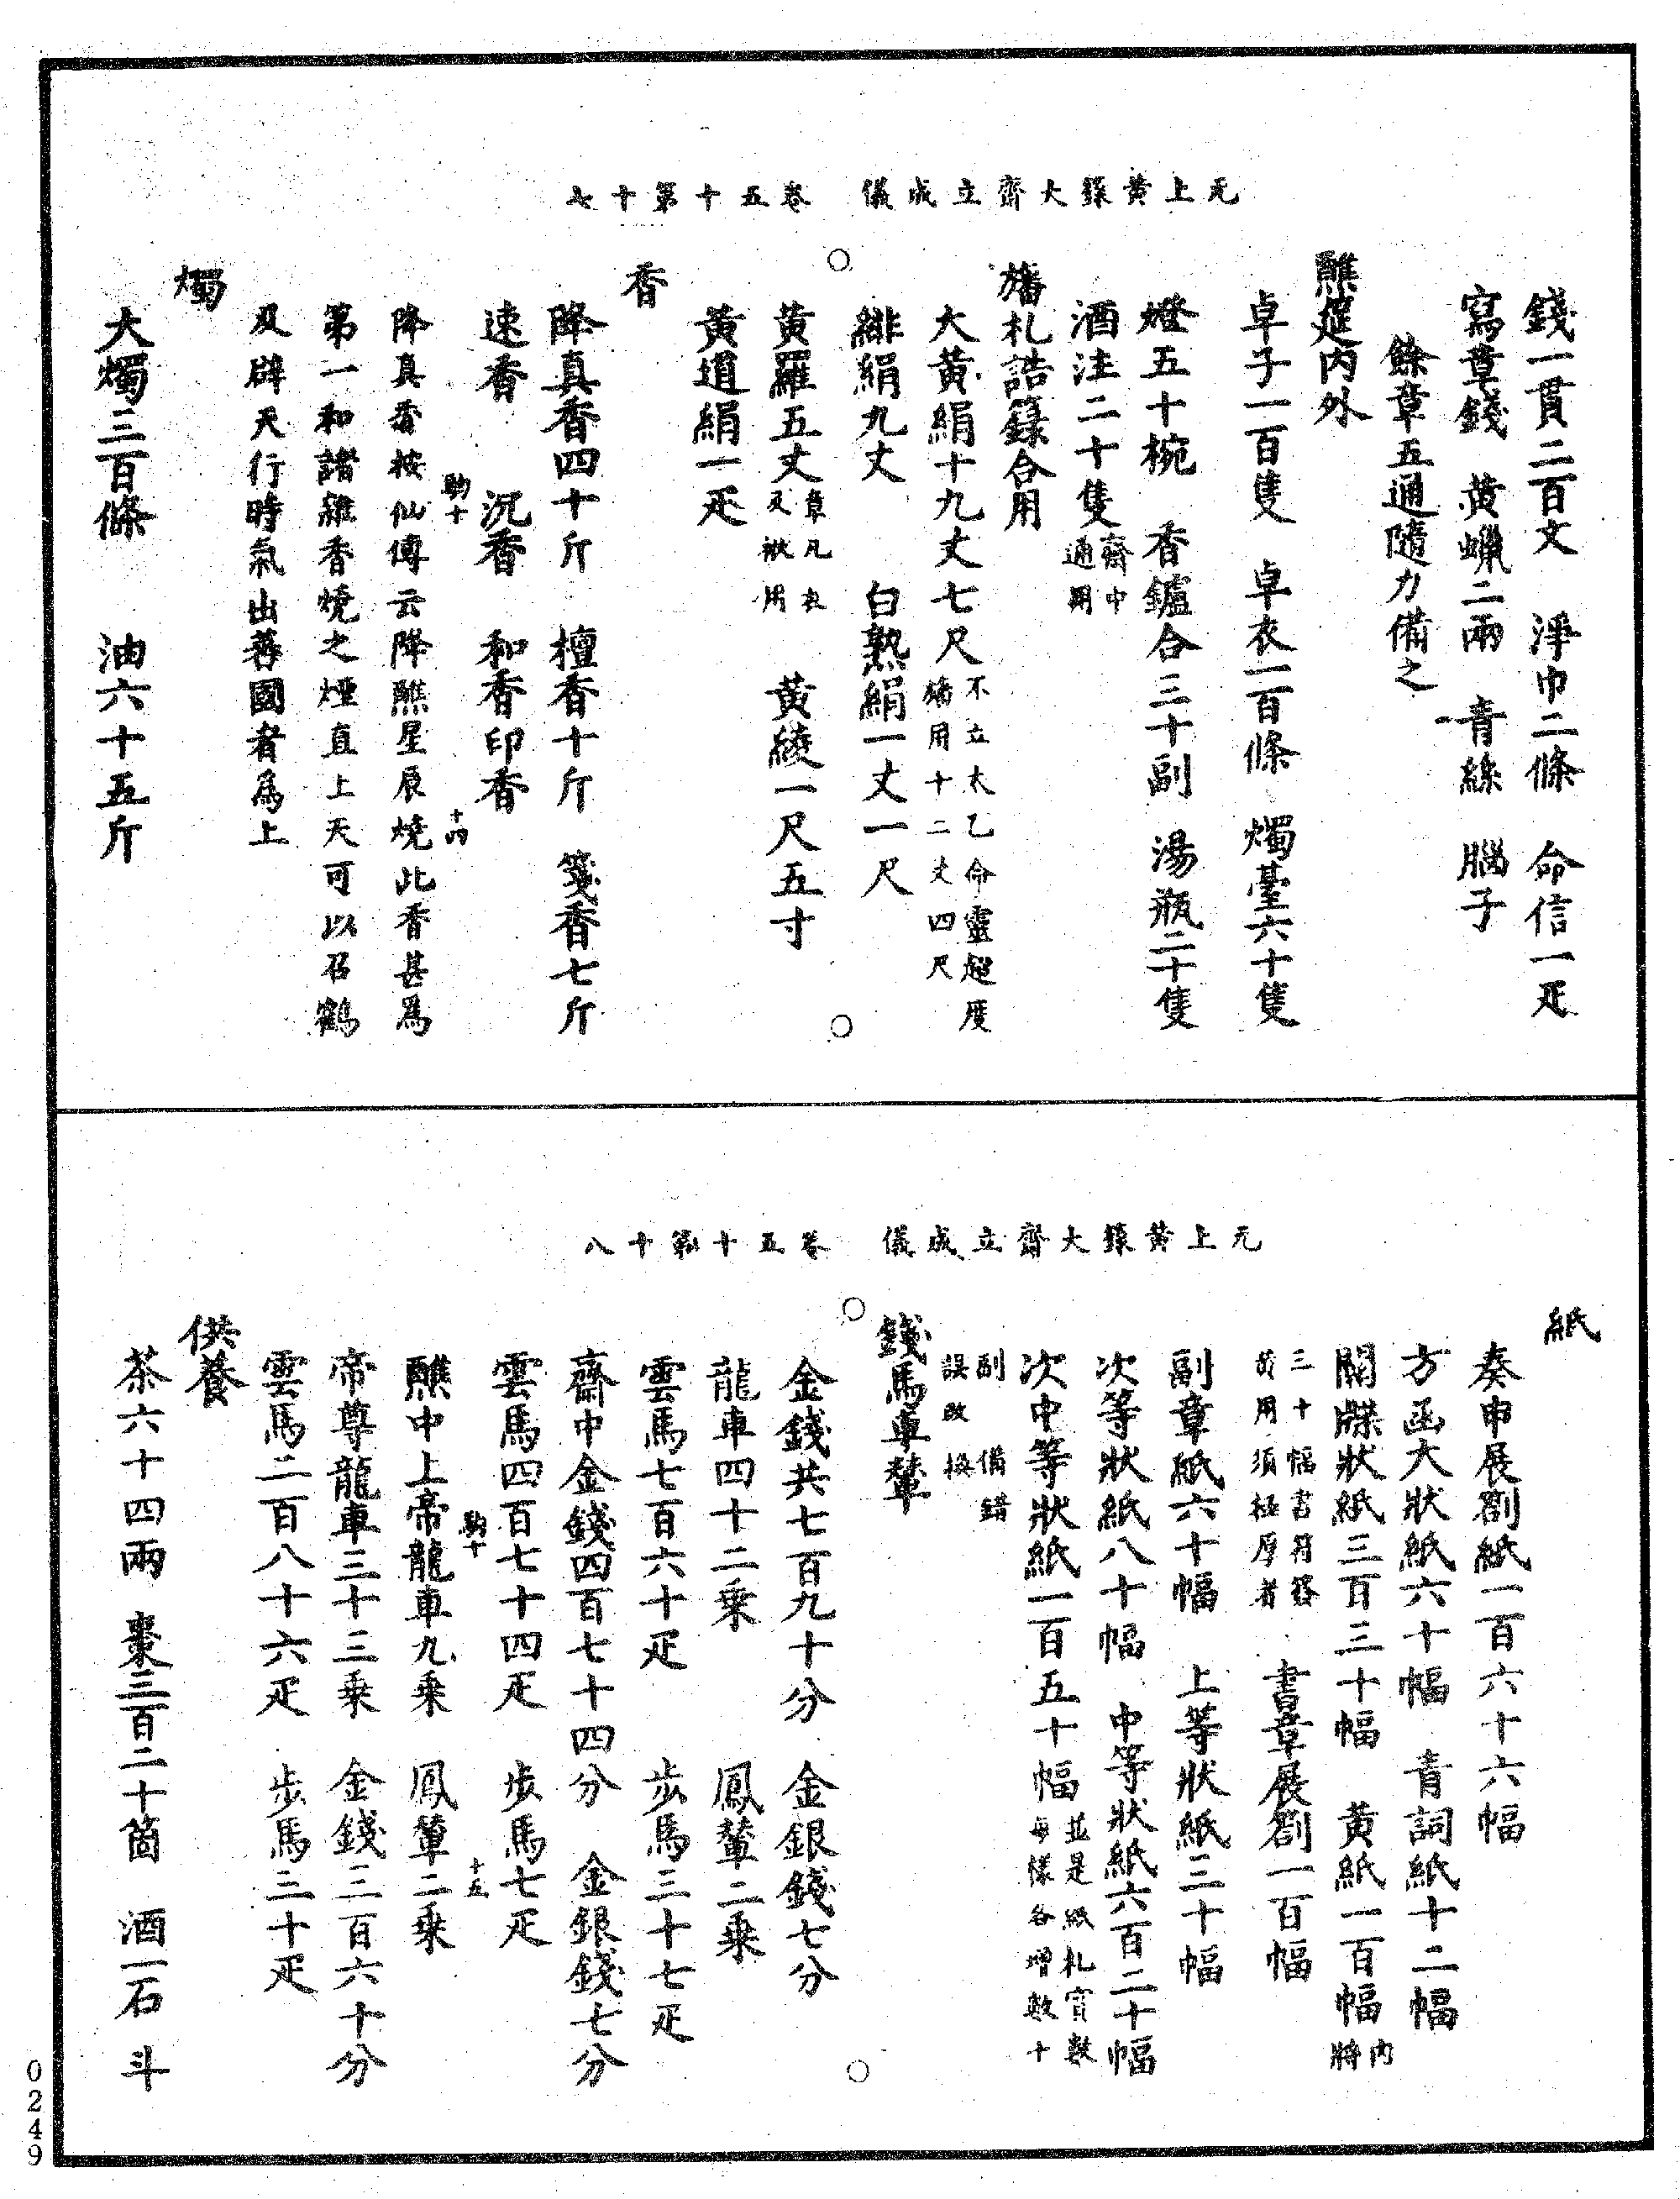 无上黃籙大齋立成儀　卷五十第十七
錢一貫二百文　淨巾二條　命信一疋
寫章錢　黃蠟二兩　青絲　腦子
餘章五通隨力備之
醮筵内外
卓子一百隻　卓衣一百條　燭臺六十隻
燈五十椀　香鑪合三十副　湯瓶二十隻
酒注二十隻齋中通用
旛札誥籙合用
大黃絹十九丈七尺不立太乙命靈超度旛用十二丈四尺
緋絹九丈　白熟絹一丈一尺
黃羅五丈章凡衣及袱用　黃綾一尺五寸
黃道絹一疋
香
降真香四十斤　檀香十斤　箋香七斤
速香　沉香　和香印香
駒十　十四
降真香按仙傳云降醮星辰燒此香甚爲
第一和諸雜香燒之煙直上天可以召鶴
及辟天行時氣出蕃國者爲上
燭
大燭三百條　油六十五斤
无上黃籙大齋立成儀　卷五十第十八
紙
奏申展劄紙一百六十六幅
方函大狀紙六十幅　青詞紙十二幅
關牒狀紙三百三十幅　黃紙一百幅内將
三十幅書符籙黃用須極厚者　書章展劄一百幅
副章紙六十幅　上等狀紙三十幅
次等狀紙八十幅　中等狀紙六百二十幅
次中等狀紙一百五十幅並是紙札實數每樣各增數十
副備錯誤改換
錢馬車輦
金錢共七百九十分　金銀錢七分
龍車四十二乘　鳳輦二乘
雲馬七百六十疋　步馬三十七疋
齋中金錢四百七十四分　金銀錢七分
雲馬四百七十四疋　步馬七疋
駒十　十五
醮中上帝龍車九乘　鳳輦二乘
帝尊龍車三十三乘　金錢三百六十分
雲馬二百八十六疋　步馬三十疋
供養
茶六十四兩　棗三百二十箇　酒一石　斗
0249